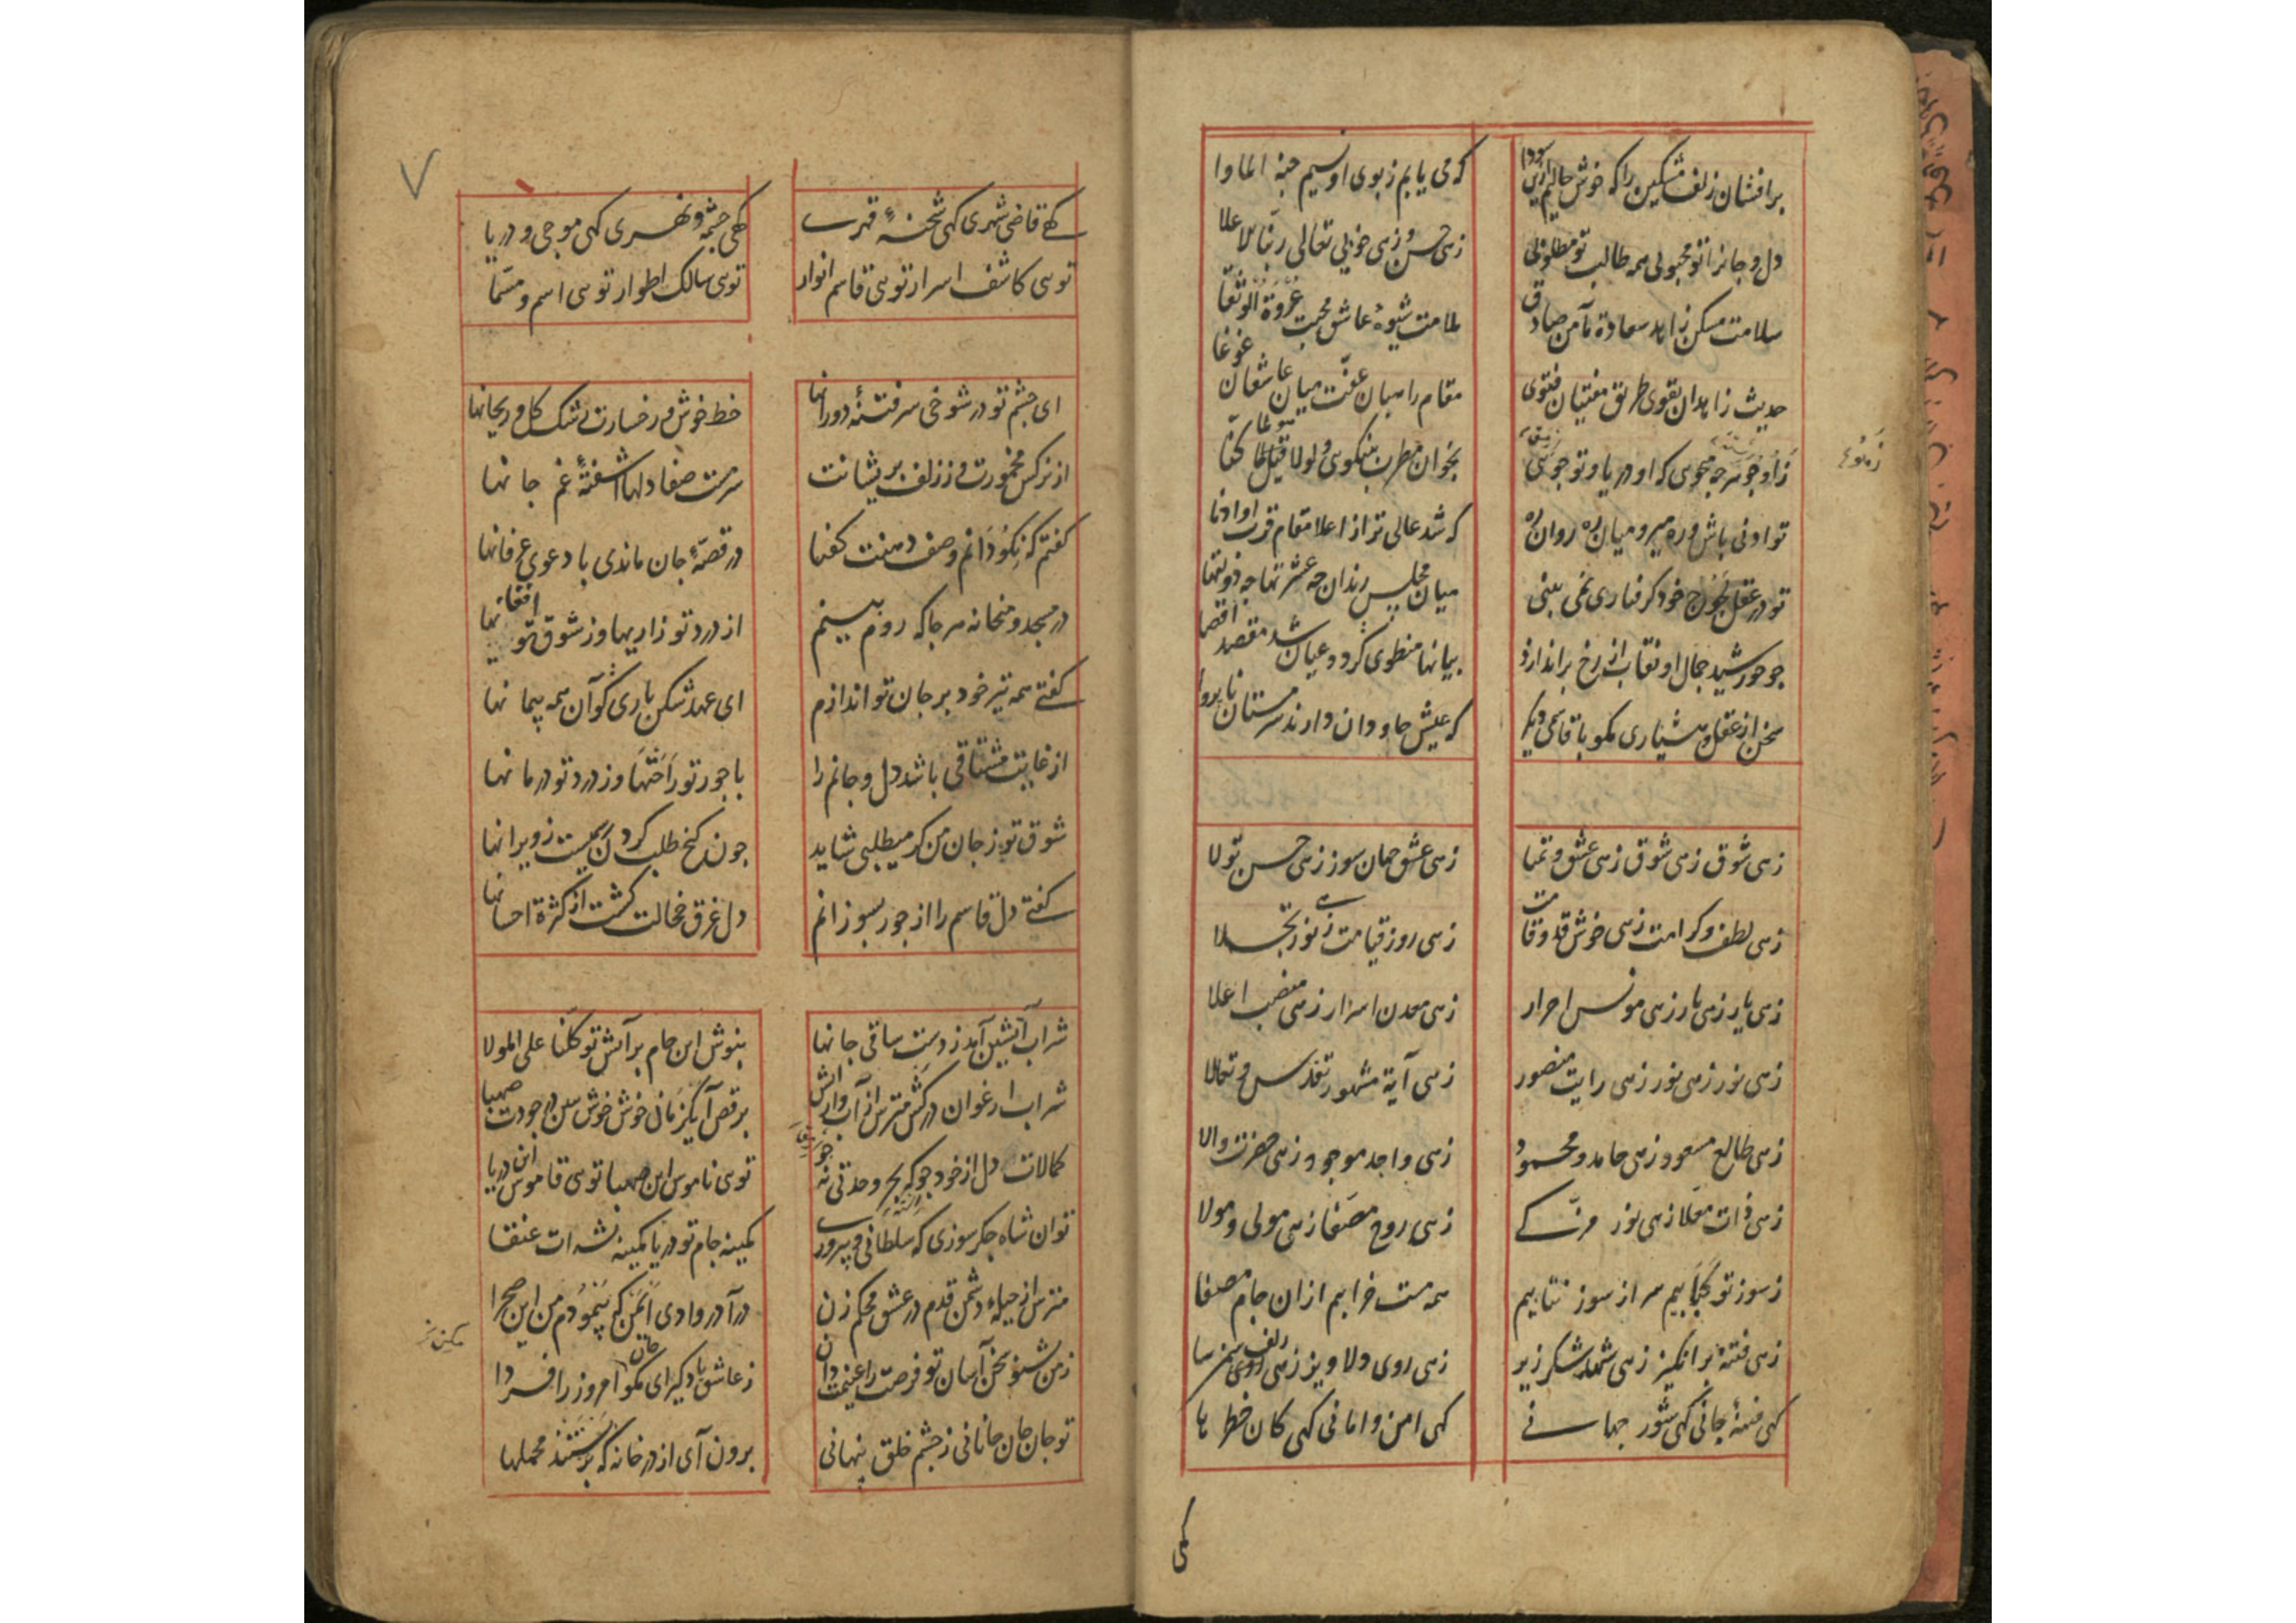 برافشان زلف مشکین را که خوش حالیم ازین سودا
که می یابم ز بوی او نسیم جنة الماوا
دل و جانرا تو محبوبی همه طالب تو مطلوبی
زهی حسن و زهی خوبی تعالی ربنا الاعلا
سلامت مسکن زاهد سعادة مأمن صادق
ملامت شیوهٔ عاشق محبت عروة الوثقا
حدیث زاهدان تقوی طریق مفتیان فتوی
مقام راهبان عفت میان عاشقان غوغا
که او دریا و تو جویی
بخوان مطرب بنیکویی
تو ادنی باش و ره میرو میان ره روان ره
که شد عالی تر از اعلا مقام قرب او ادنا
تو در عقل لجوج خود گرفتاری نمی بینی
میان مجلس رندان چه عشرتها چه ذوقتها
چو خورشید جمال او نقاب از رخ براندازد
بیانها منطوی گردد عیان شد مقصد اقصا
سخن از عقل و هشیاری مگو با قاسمی دیگر
که عیش جاودان دارند سرمستان ناپروا
زهی شوق زهی شوق زهی عشق و تمنا
زهی عشق جهان سوز زهی حسن تولا
زهی لطف و کرامت زهی خوش قد و قامت
زهی روز قیامت زهی نور تجلا
زهی یار زهی یار زهی مونس احرار
زهی معدن اسرار زهی منصب اعلا
زهی نور زهی نور زهی رایت منصور
زهی آیة مشهور تقدس و تعالا
زهی طالع مسعود زهی حامد و محمود
زهی واجد موجود زهی حضرت والا
زهی ذات معلا زهی نور مزکی
زهی روح مصفا زهی مولی و مولا
ز سوز تو کبابیم سر از سوز نتابیم
همه مست خرابیم ازان جام مصفا
زهی فتنهٔ برانگیز زهی شهد شکر ریز
زهی روی دلاویز زهی زلف سمن سا
گهی فتنهٔ جانی گهی شور جهانی
گهی امن و امانی گهی کان خطرها
گهی
۷
گهی قاضی شهری گهی شحنهٔ قهری
گهی چشمه و نهری گهی موجی و دریا
تویی کاشف اسرار تویی قاسم انوار
تویی سالک اطوار تویی اسم و مسما
ای چشم تو در شوخی سر فتنهٔ دورانها
خط خوش و رخسارت رشک گل و ریحانها
از نرگس مخمورت وز زلف پریشانت
سرمست صفا دلها آشفتهٔ غم جانها
گفتم که نکو دانم وصف دهنت گفتا
در قصهٔ جان ماندی با دعوی عرفانها
در مسجد و میخانه هر جا که روم بینم
از درد تو زاریها وز شوق تو افغانها
گفتی همه تیر خود بر جان تو اندازم
ای عهد شکن یاری کو آن همه پیمانها
از غایت مشتاقی باشد دل و جانم را
با جور تو راحتها وز درد تو درمانها
شوق تو ز جان من گر میطلبی شاید
چون گنج طلب کردن رسمیست ز ویرانها
گفتی دل قاسم را از جور بسوزانم
دل غرق خجالت گشت از کثرة احسانها
شراب آتشین آمد ز دست ساقی جانها
بنوش این جام پرآتش توکلنا علی المولا
شراب ارغوان درکش مترس از آب و از آتش
برقص آ یکزمان خوش خوش ببین در جودت صهبا
کمالات دل از خود جو که بحر وحدتی نه جو
تویی ناموس این صهبا تویی قاموس این دریا
توان شاه جگر سوزی که سلطانی و پیروزی
کمینه جام تو دریا کمینه نشه ات عنقا
مترس از حیلهٔ دشمن قدم در عشق محکم زن
درآ در وادی ایمن که پیمودم من این صحرا
ز من بشنو سخن آسان تو فرصت را غنیمت دان
ز عاشق یاد گیر ای جان مگو امروز را فردا
تو جان جان جانانی ز چشم خلق پنهانی
برون آی از در خانه که بربستند محملها